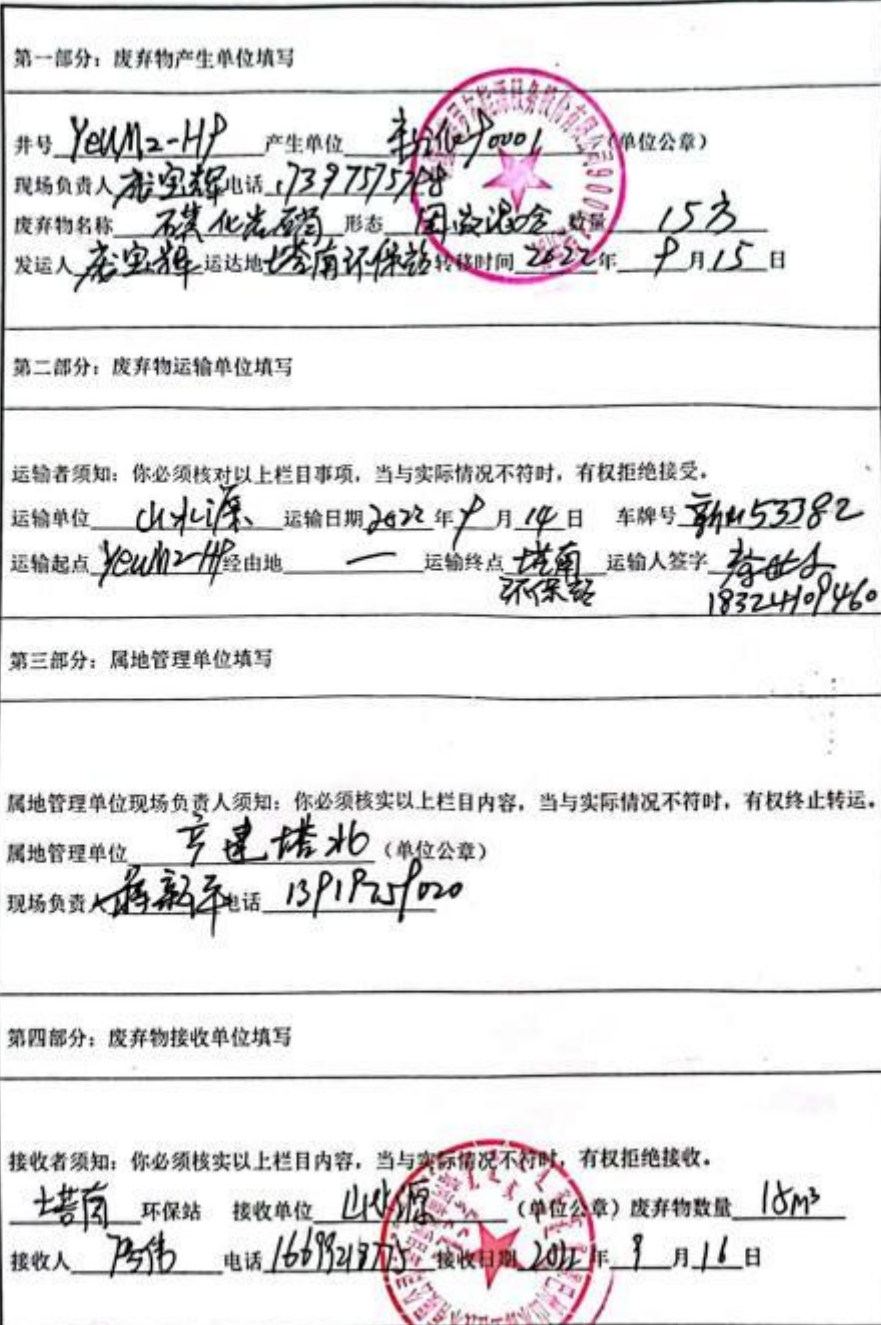 第一部分：废弃物产生单位填写
井号 YeuM2-H9 产生单位 90001 （单位公章）
现场负责人 庞宝辉 电话
废弃物名称 磺化岩屑 形态 固液混合 数量 15方
发运人 庞宝辉 运达地 塔南环保站 转移时间 2022 年 9 月 15 日
第二部分：废弃物运输单位填写
运输者须知：你必须核对以上栏目事项，当与实际情况不符时，有权拒绝接受。
运输单位 山水源 运输日期 2022 年 9 月 14 日 车牌号 53382
运输起点 YeuM2-H9 经由地 一 运输终点 塔南 运输人签字
环保站 18324109460
第三部分：属地管理单位填写
属地管理单位现场负责人须知：你必须核实以上栏目内容，当与实际情况不符时，有权终止转运。
属地管理单位 塔北 （单位公章）
现场负责人 新平 电话
第四部分：废弃物接收单位填写
接收者须知：你必须核实以上栏目内容，当与实际情况不符时，有权拒绝接收。
塔南 环保站 接收单位 山水源 （单位公章）废弃物数量 15m³
接收人 电话 16699218775 接收日期 2022 年 9 月 16 日